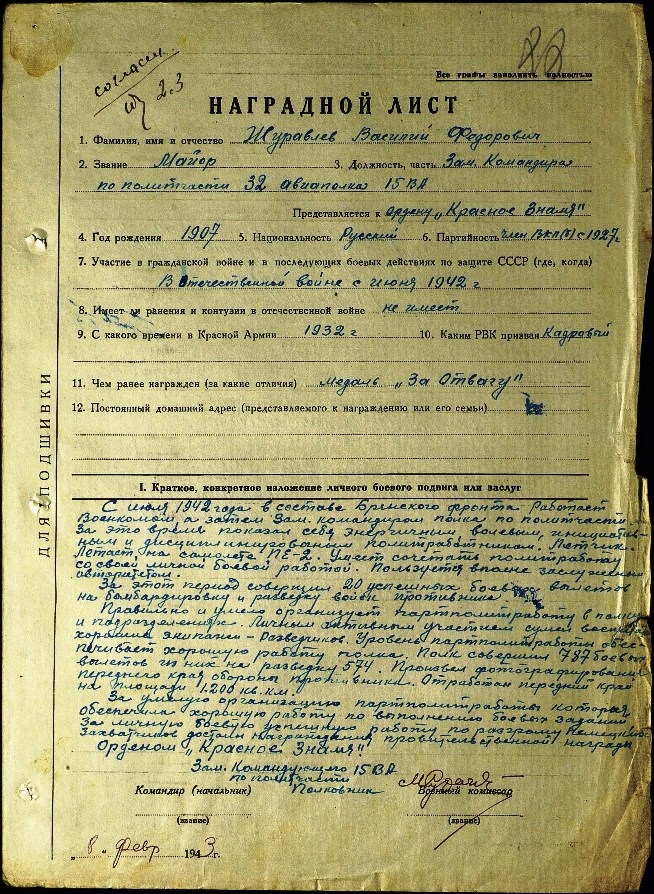 согласен
2.3
Все графы заполнить полностью
НАГРАДНОЙ ЛИСТ
1. Фамилия, имя и отчество Журавлев Василий Федорович
2. Звание Майор 3. Должность, часть Зам. Командира
по политчасти 32 авиаполка 15 ВА
Представляется к ордену „Красное Знамя"
4. Год рождения 1907 5. Национальность Русский 6. Партийность член ВКП(б) с 1927г
7. Участие в гражданской войне и в последующих боевых действиях по защите СССР (где, когда)
В Отечественной войне с июня 1942 г
8. Имеет ли ранения и контузии в отечественной войне не имеет
9. С какого времени в Красной Армии 1932 г 10. Каким РВК призван Кадровый
11. Чем ранее награжден (за какие отличия) медаль „За Отвагу"
12. Постоянный домашний адрес (представляемого к награждению или его семьи)
ДЛЯ ПОДШИВКИ
I. Краткое, конкретное изложение личного боевого подвига или заслуг
С июля 1942 года в составе Брянского фронта Работает
Военкомом а затем Зам. командиром полка по политчасти.
За это время показал себя энергичным волевым, инициатив-
ным и дисциплинированным политработником. Летчик.
Летает на самолете ПЕ-2. Умеет сочетать политработу
со своей личной боевой работой. Пользуется вполне заслуженным
авторитетом.
За этот период совершил 20 успешных боевых вылетов
на бомбардировку и разведку войск противника
Правильно и умело организует партполитработу в полку
и подразделение. Личным активным участием сумел воспитать
хорошие экипажи - Разведчиков. Уровень партполитработы обес-
печивает хорошую работу полка. Полк совершил 787 боевых
вылетов из них на разведку 574. Произвел фотографирование
переднего края обороны противника. Отработан передний край
на площади 1.200 кв. км.
За умелую организацию партполитработы которая
обеспечила хорошую работу по выполнению боевых заданий
За личную боевую успешную работу по разгрому Немецких
Захватчиков достоин Награждения правительственной награды
Орденом „Красное Знамя"
Зам. Командующего 15 ВА
по политчасти
Полковник
Командир (начальник) Военный комиссар
(звание) (звание)
„8" февр 1943 г.